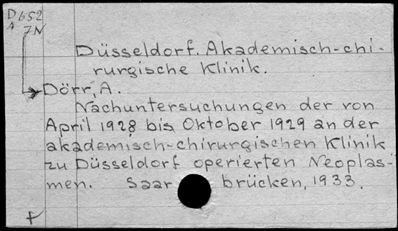 D652
A 7N
Düsseldorf. Akademisch-chi-
rurgische Klinik.
Dörr, A.
Nachuntersuchungen der von
April 1928 bis Oktober 1929 an der
akademisch-chirurgischen Klinik
zu Düsseldorf operierten Neoplas-
men. Saar brücken, 1933.